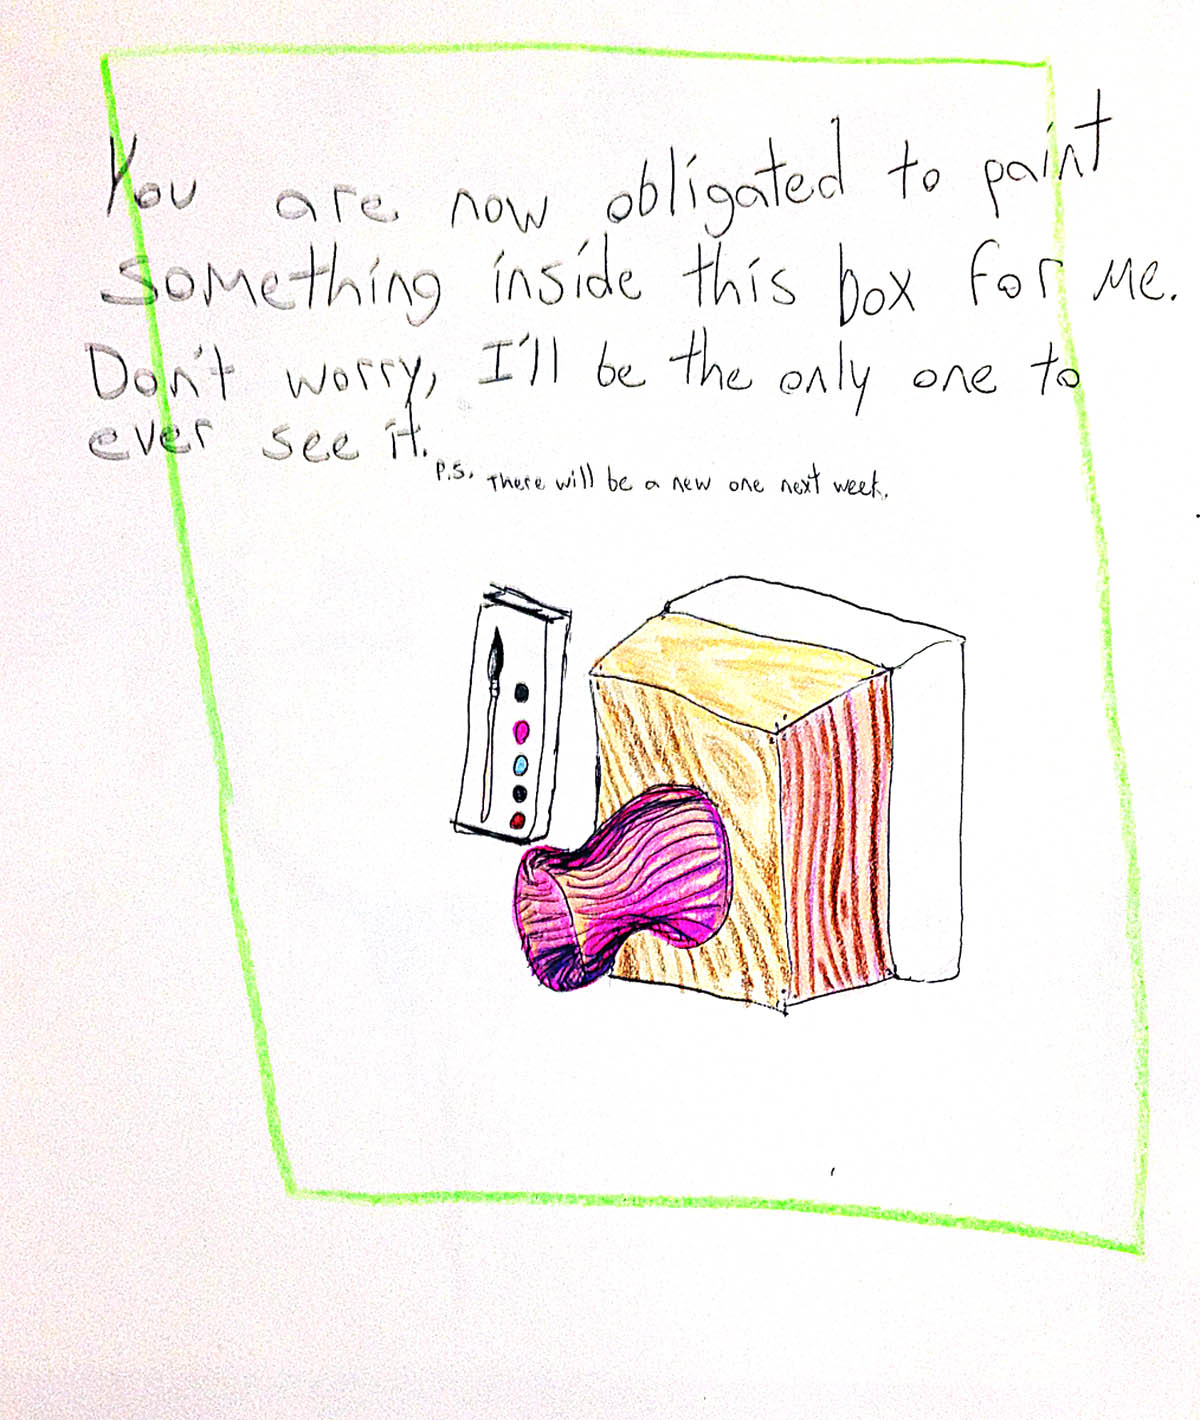 You are now obligated to paint
something inside this box for me.
Don't worry, I'll be the only one to
ever see it.
P.S. There will be a new one next week.